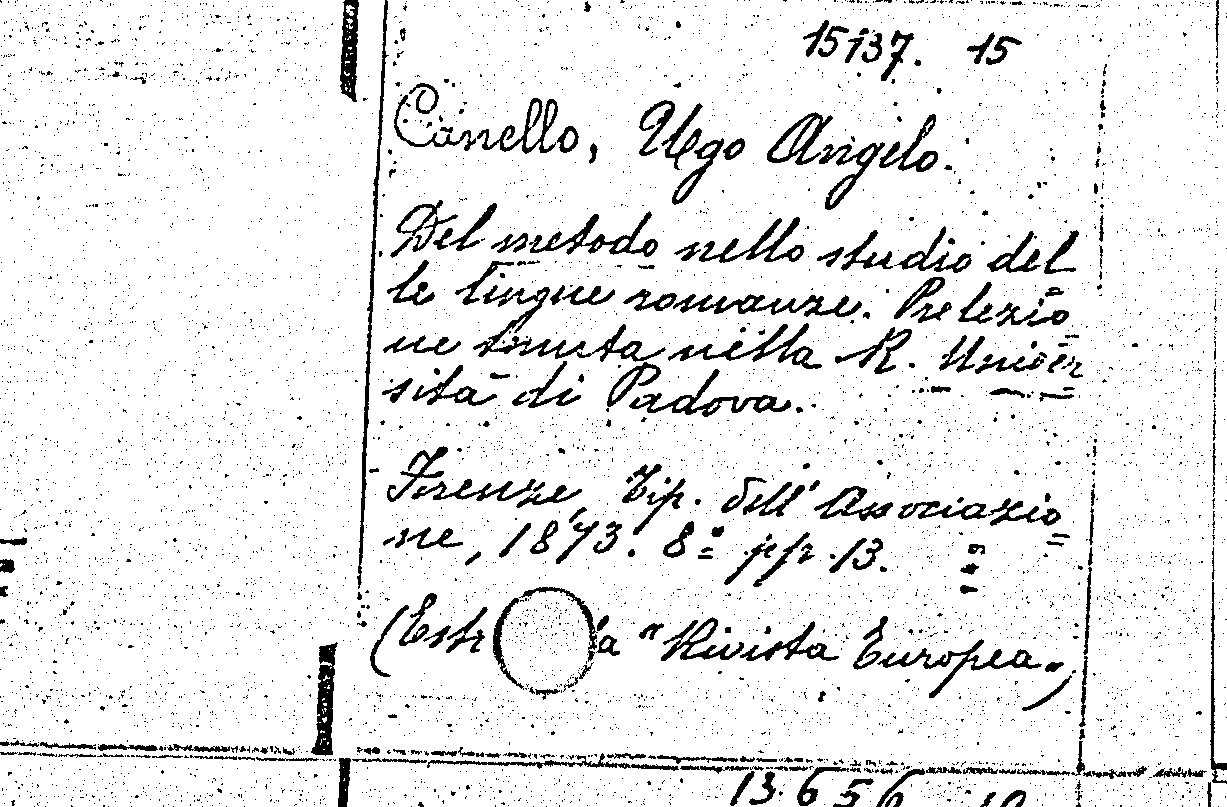 15137. 15
Canello, Ugo Angelo.
Del metodo nello studio del
le lingue romanze. Prelezio
ne tenuta nella R. Univer
sità di Padova.
Firenze, Tip. dell' Associazio
ne, 1873. 8º pp. 13.
(Estr a "Rivista Europea„)
13656 10